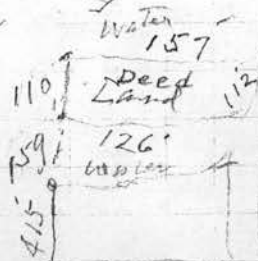 Water
157'
110' Deed 112
Land
59' 126'
water
415'